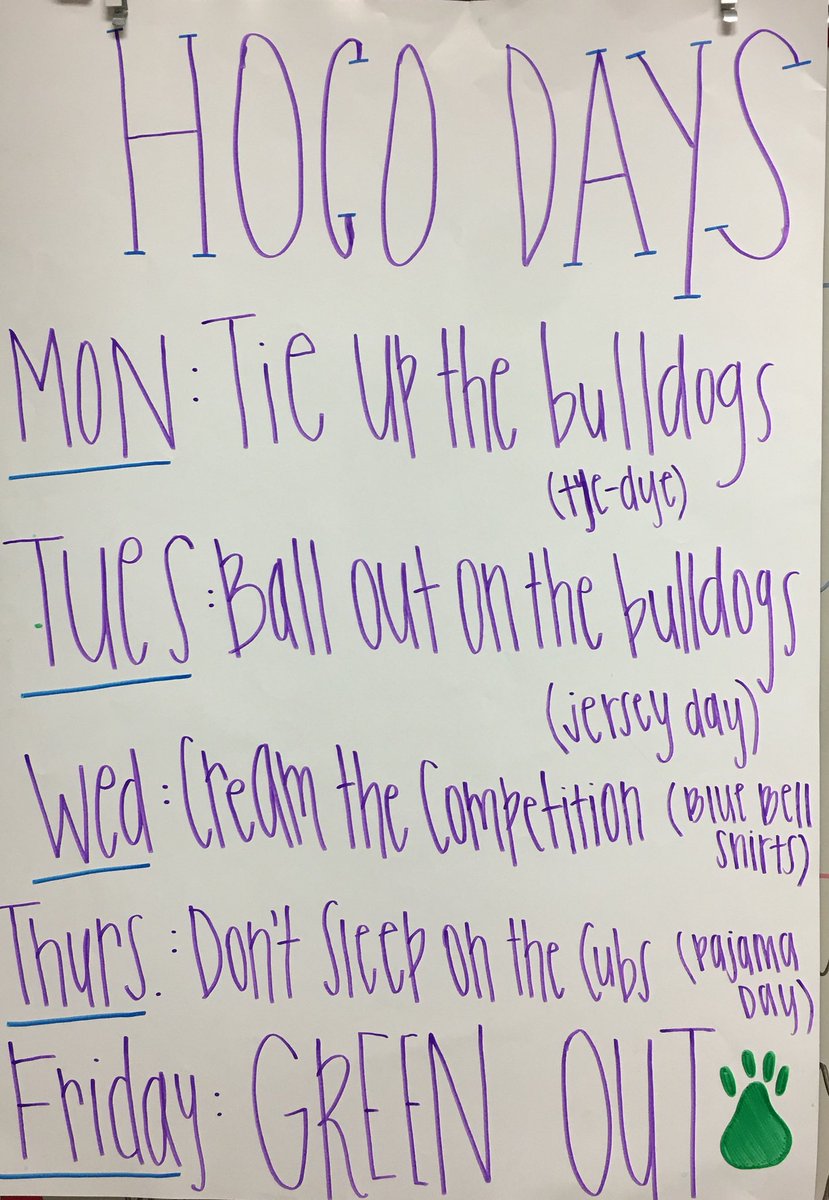 HOCO DAYS
MON: Tie up the bulldogs
(tye-dye)
Tues: Ball out on the bulldogs
(jersey day)
Wed: Cream the Competition (Blue Bell
shirts)
Thurs.: Don't Sleep on the Cubs (pajama
Day)
Friday: GREEN OUT